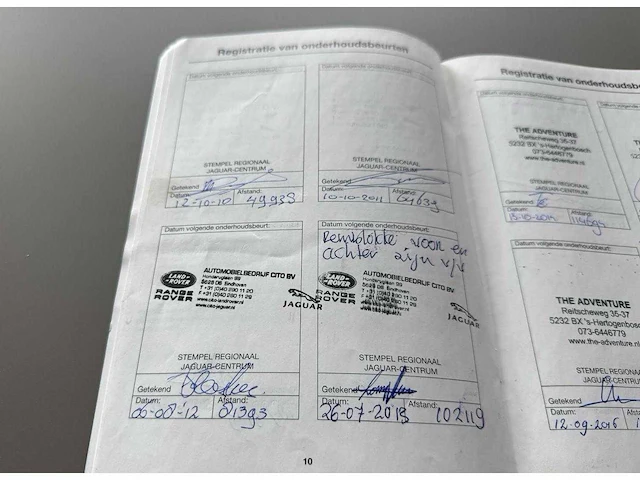 Registratie van onderhoudsbeurten
Datum volgende onderhoudsbeurt:
STEMPEL REGIONAAL
JAGUAR-CENTRUM
Getekend
Datum: Afstand:
12-10-10 49938
Datum volgende onderhoudsbeurt:
STEMPEL REGIONAAL
JAGUAR-CENTRUM
Getekend
Datum: Afstand:
10-10-2011
Datum volgende onderhoudsbeurt:
LAND-ROVER
RANGE ROVER
AUTOMOBIELBEDRIJF CITO BV
Hondsruglaan 99
5628 DB Eindhoven
T +31 (0)40 290 11 20
F +31 (0)40 290 11 29
www.cito-landrover.nl
www.cito-jaguar.nl
JAGUAR
STEMPEL REGIONAAL
JAGUAR-CENTRUM
Getekend
Datum: Afstand:
06-08-'12 81393
Datum volgende onderhoudsbeurt:
Remblokke voor en
achter zijn v/v
LAND-ROVER
RANGE ROVER
AUTOMOBIELBEDRIJF CITO BV
Hondsruglaan 99
5628 DB Eindhoven
JAGUAR
STEMPEL REGIONAAL
JAGUAR-CENTRUM
Getekend
Datum: Afstand:
26-07-2013 102119
10
Registratie van
Datum volgende onderhoudsbeurt:
THE ADVENTURE
Reitscheweg 35-37
5232 BX 's-Hertogenbosch
073-6446779
www.the-adventure.nl
STEMPEL REGIONAAL
JAGUAR-CENTRUM
Getekend
Datum: Afstand:
Datum volgende onderhoudsbeurt:
THE ADVENTURE
Reitscheweg 35-37
5232 BX 's-Hertogenbosch
073-6446779
www.the-adventure.nl
STEMPEL REGIONAAL
JAGUAR-CENTRUM
Getekend
Datum: